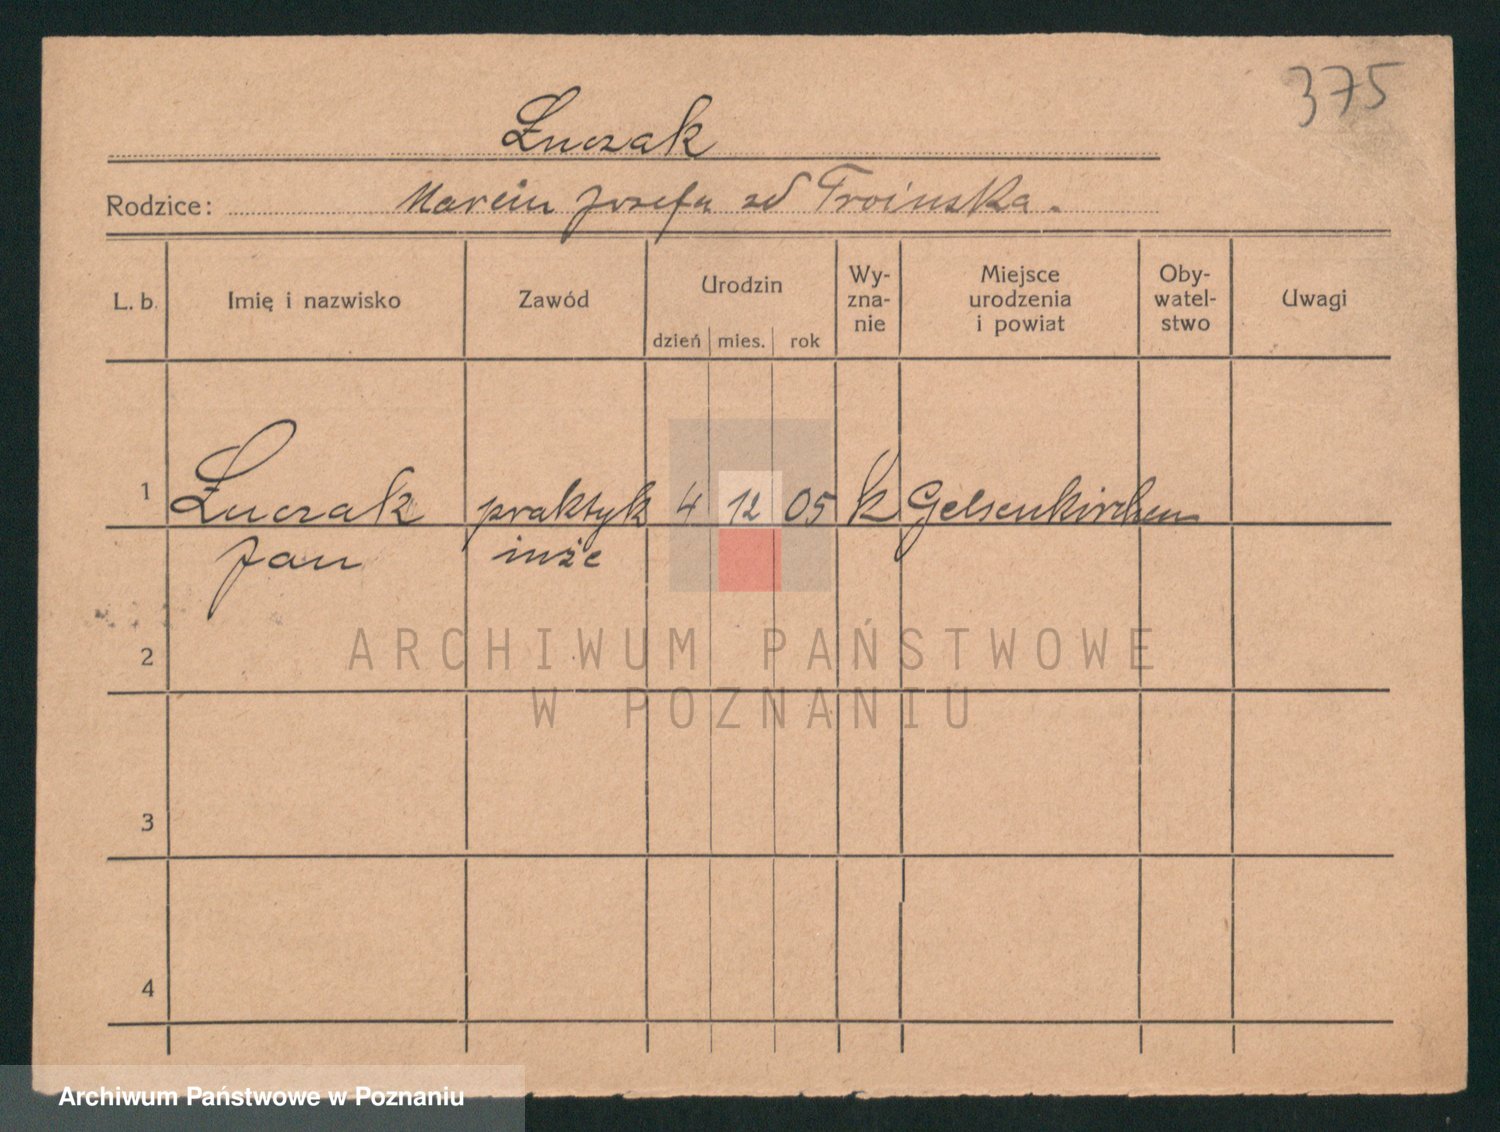 375
Łuczak
Rodzice: Marcin Josefa zd Troińska.
L. b. Imię i nazwisko Zawód Urodzin dzień mies. rok Wy-zna-nie Miejsce urodzenia i powiat Oby-watel-stwo Uwagi
1 Łuczak praktyk 4 12 05 k Gelsenkirchen
Jan inże
2
ARCHIWUM PAŃSTWOWE
W POZNANIU
3
4
Archiwum Państwowe w Poznaniu